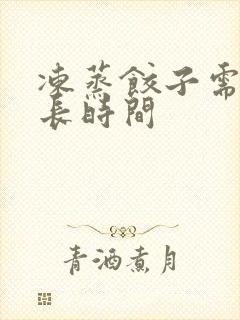 凍蒸餃子需
長時間
青酒煮月